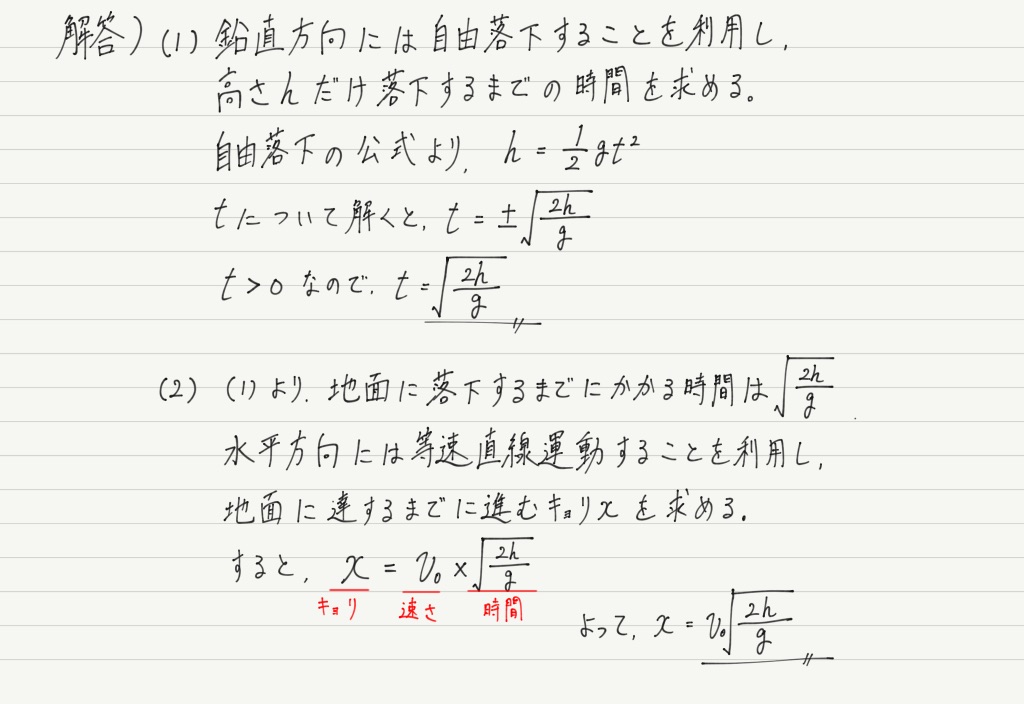 解答) (1) 鉛直方向には自由落下することを利用し,
高さhだけ落下するまでの時間を求める。
自由落下の公式より, h = 1/2 gt²
tについて解くと, t = ±√(2h/g)
t > 0 なので, t = √(2h/g)
(2) (1)より, 地面に落下するまでにかかる時間は √(2h/g)
水平方向には等速直線運動することを利用し,
地面に達するまでに進むキョリxを求める.
すると, x = v₀ × √(2h/g)
キョリ 速さ 時間
よって, x = v₀√(2h/g)